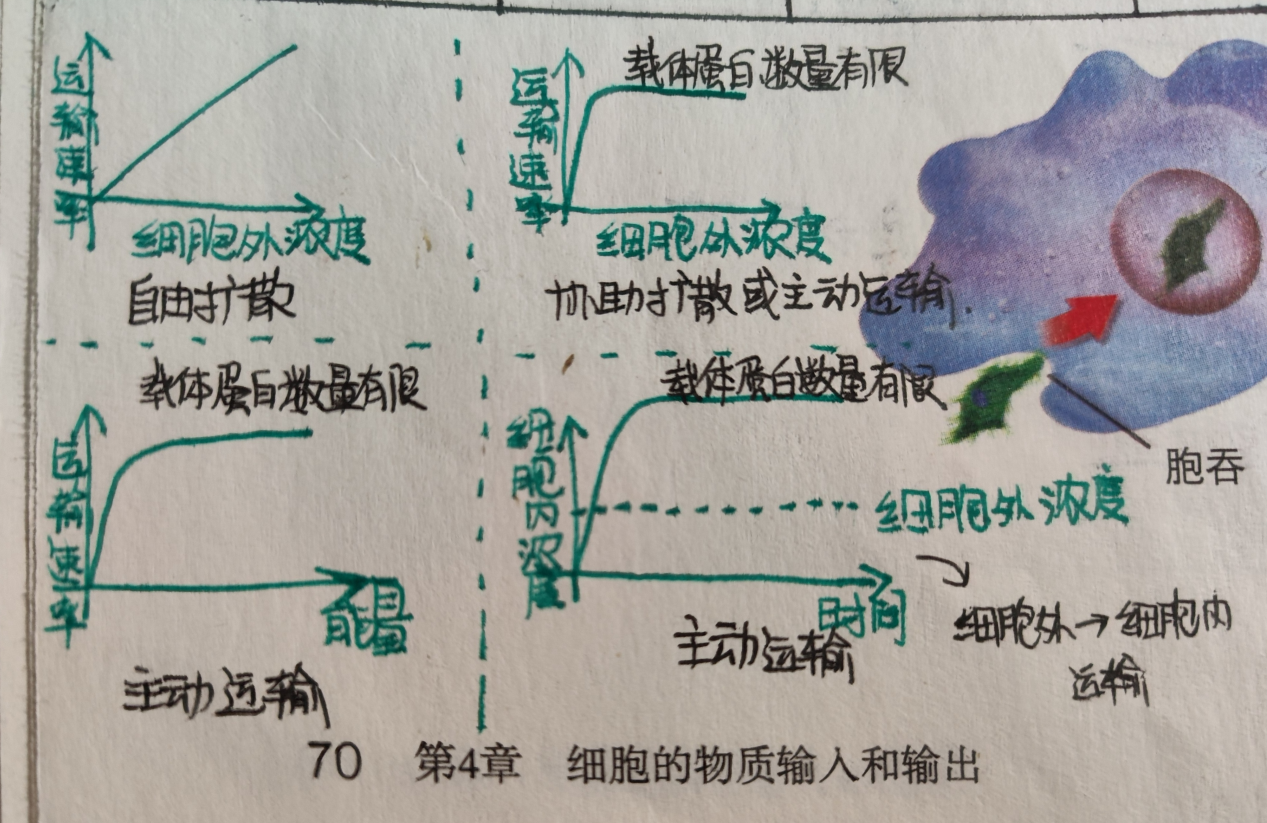 运输速率
细胞外浓度
自由扩散
载体蛋白数量有限
运输速率
细胞外浓度
协助扩散或主动运输.
载体蛋白数量有限
运输速率
能量
主动运输
载体蛋白数量有限
细胞内浓度
细胞外浓度
时间
主动运输
细胞外→细胞内
运输
胞吞
70 第4章 细胞的物质输入和输出